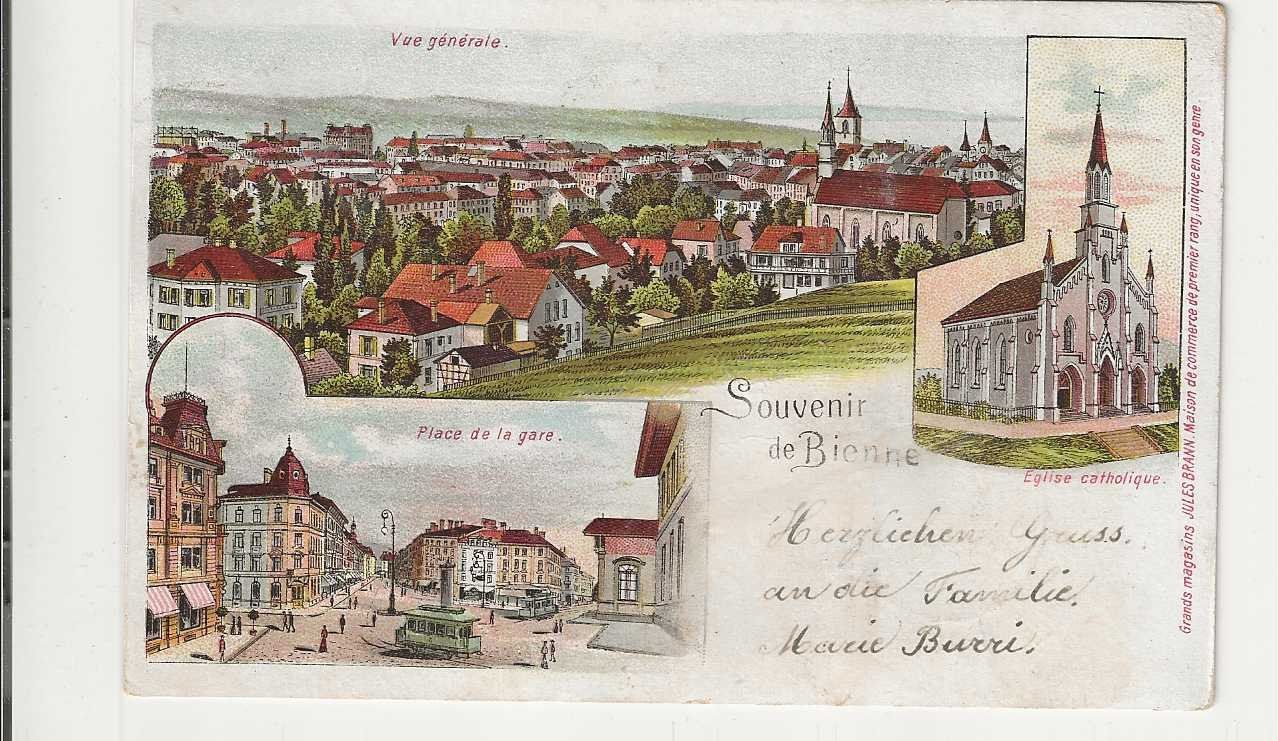 Vue générale.
Place de la gare.
Souvenir
de Bienne
Eglise catholique.
Grands magasins JULES BRANN. Maison de commerce de premier rang, unique en son genre
Herzlichen Gruss.
an die Familie.
Marie Burri.